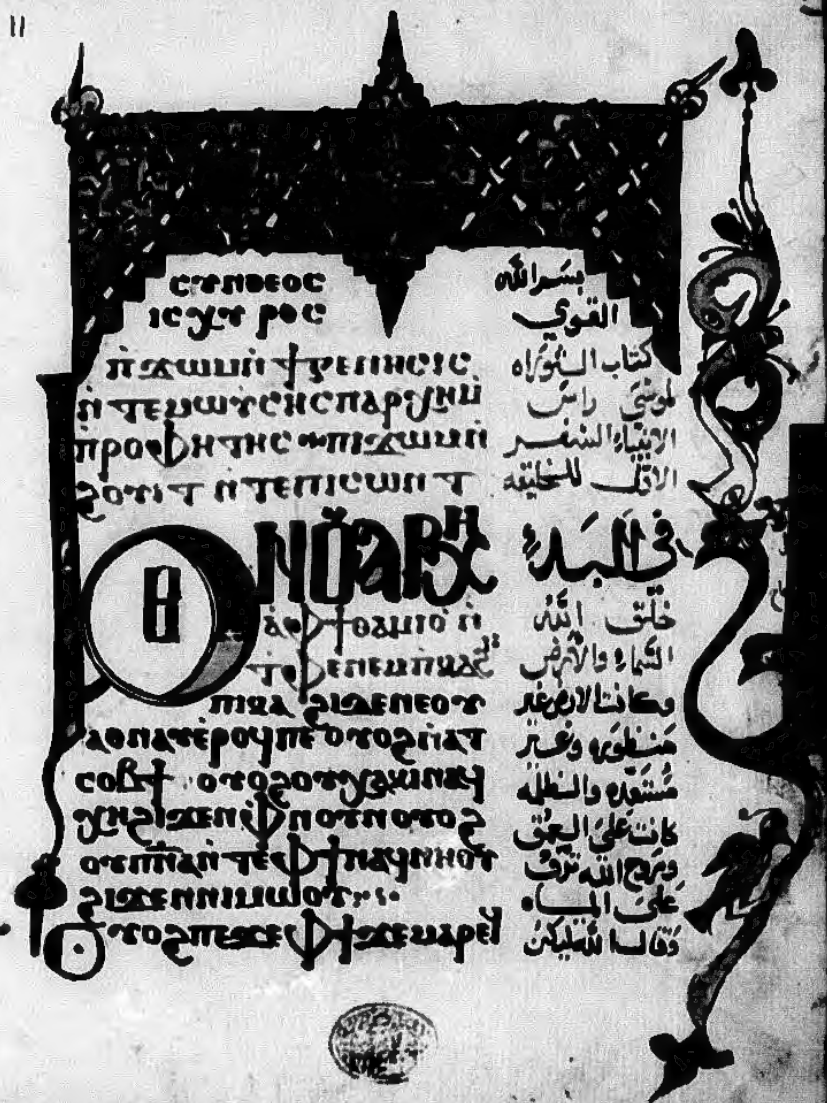 ⲥⲩⲛⲑⲉⲟⲥ
ⲓⲥⲭⲩⲣⲟⲥ
ⲡ̀ϫⲱⲙ ⲛ̀ϯⲅⲉⲛⲏⲥⲓⲥ
ⲛ̀ⲧⲉⲙⲱⲩⲥⲏⲥ ⲡⲁⲣⲭⲏ
ⲡⲣⲟⲫⲏⲧⲏⲥ ⲡⲓϫⲱⲙ ⲛ̀
ϩⲟⲩⲓⲧ ⲛ̀ⲧⲉⲡⲓⲥⲱⲛⲧ
ϧⲉⲛⲟⲩⲁⲣⲭⲏ
ⲁ̀ⲫϯⲑⲁⲙⲓⲟ ⲛ̀
ⲧ̀ⲫⲉⲛⲉⲙⲡⲕⲁϩⲓ
ⲡⲓⲕⲁϩⲓⲇⲉⲛⲉⲟⲩ
ⲁⲑⲛⲁⲩⲉ̀ⲣⲟϥⲡⲉ ⲟⲩⲟϩⲛ̀ⲁⲧ
ⲥⲟⲃϯ ⲟⲩⲟϩⲟⲩⲭⲁⲕⲓⲛⲁϥ
ⲭⲏϩⲓϫⲉⲛⲫ̀ⲛⲟⲩⲛ ⲟⲩⲟϩ
ⲟⲩⲡ̅ⲛ̅ⲁ̅ ⲛ̀ⲧⲉⲫϯⲛⲁϥⲛⲏⲟⲩ
ϩⲓϫⲉⲛⲛⲓⲙⲱⲟⲩ
ⲟⲩⲟϩⲡⲉϫⲉⲫϯϫⲉⲙⲁⲣⲉϥ
بسم الله
القوي
كتاب التوراه
لموسى راس
الانبياء السفر
الاول للخليقه
في البدء
خلق الله
السماء والارض
وكانت الارض غير
منظوره وغير
مستعده والظلمه
كانت على العمق
وروح الله ترف
على المياه
وقال الله ليكن